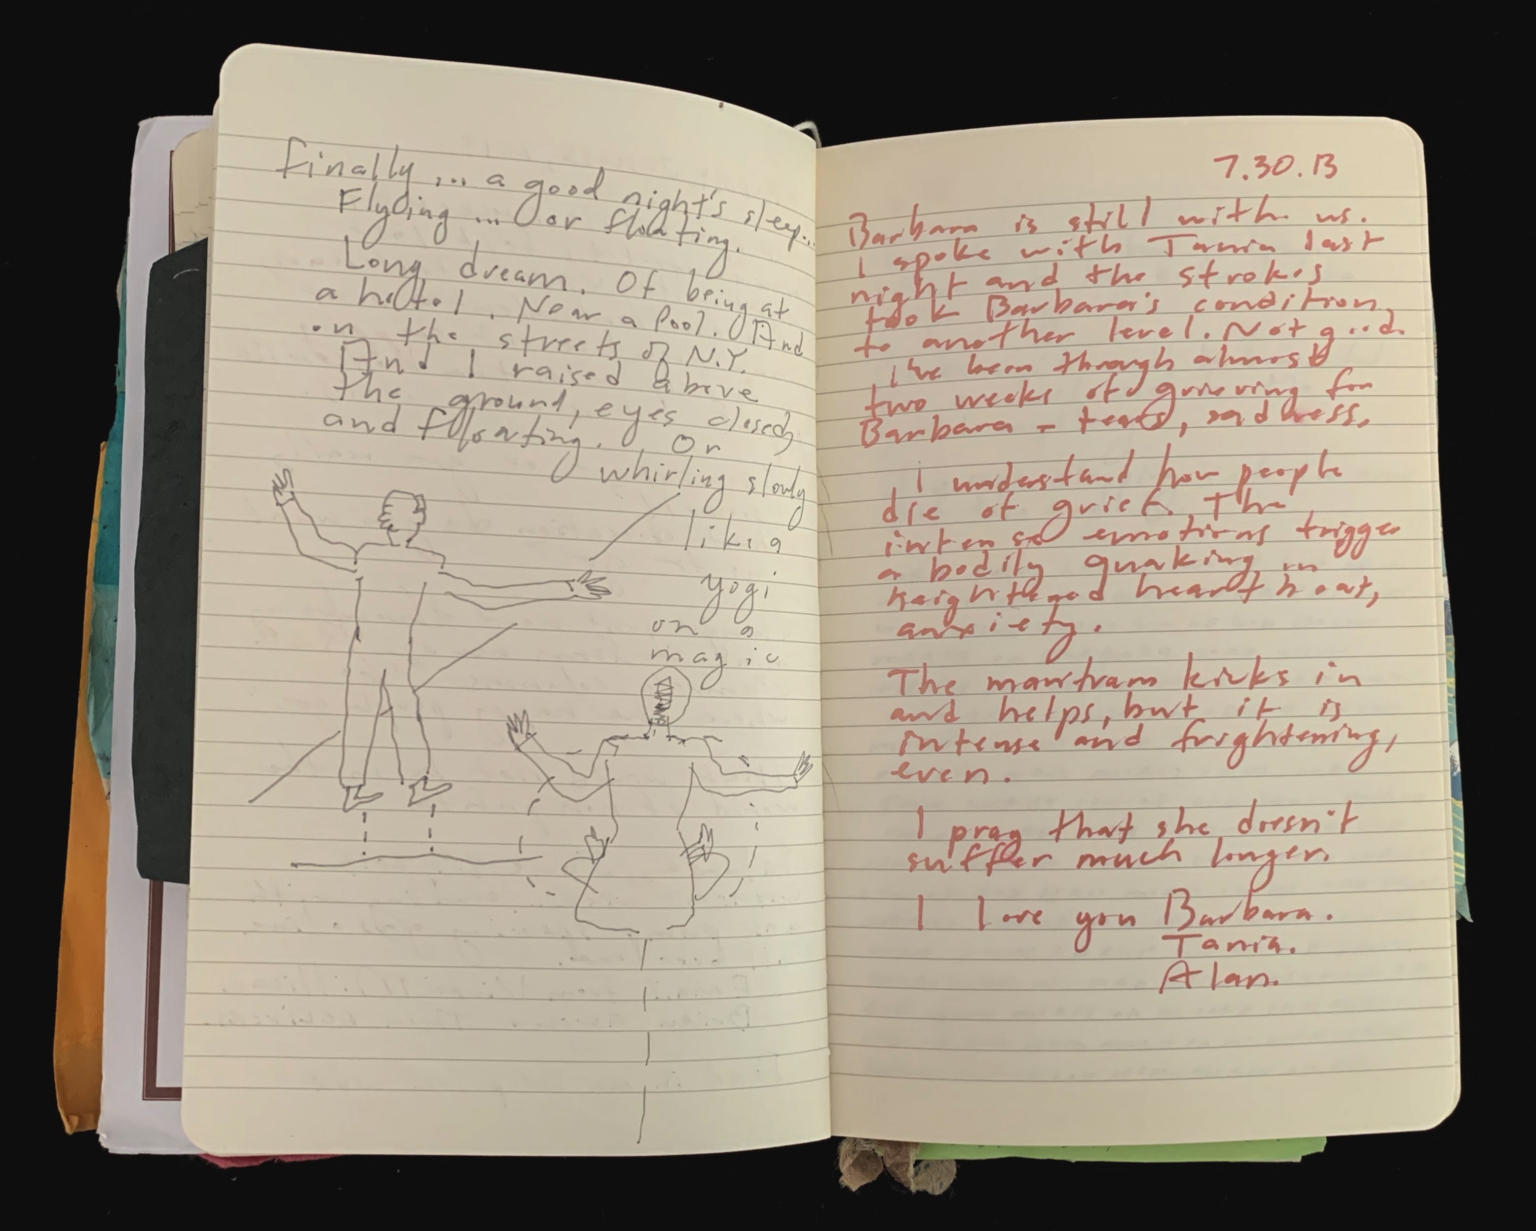 Finally ... a good night's sleep...
Flying ... or floating.
Long dream. Of being at
a hotel. Near a Pool. And
on the streets of N.Y.
And I raised above
the ground, eyes closed,
and floating. Or
whirling slowly
like a
yogi
on a
magic
7.30.13
Barbara is still with us.
I spoke with Tania last
night and the strokes
took Barbara's condition
to another level. Not good.
I've been through almost
two weeks of grieving for
Barbara - tears, sadness.
I understand how people
die of grief. The
intense emotions trigger
a bodily quaking in
heightened heart beat,
anxiety.
The mantram kicks in
and helps, but it is
intense and frightening,
even.
I pray that she doesn't
suffer much longer.
I love you Barbara.
Tania.
Alan.